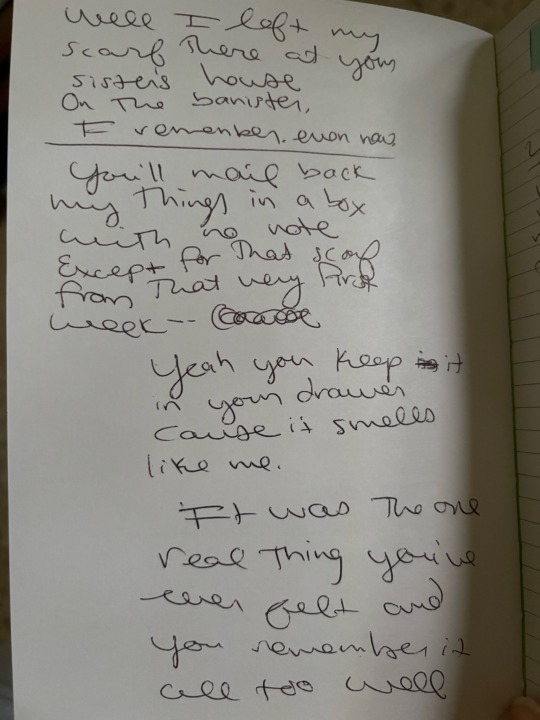 Well I left my
scarf There at your
sister's house
On The banister,
I remember. even now
You'll mail back
my Things in a box
with no note
Except for That scarf
from That very first
week--
Yeah you keep it
in your drawer
Cause it smells
like me.
It was The one
real Thing you've
ever felt and
you remember it
all too well